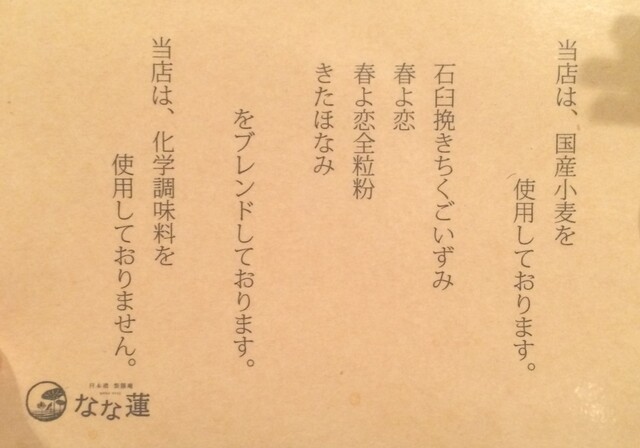 当店は、国産小麦を
使用しております。
石臼挽きちくごいずみ
春よ恋
春よ恋全粒粉
きたほなみ
をブレンドしております。
当店は、化学調味料を
使用しておりません。
なな蓮